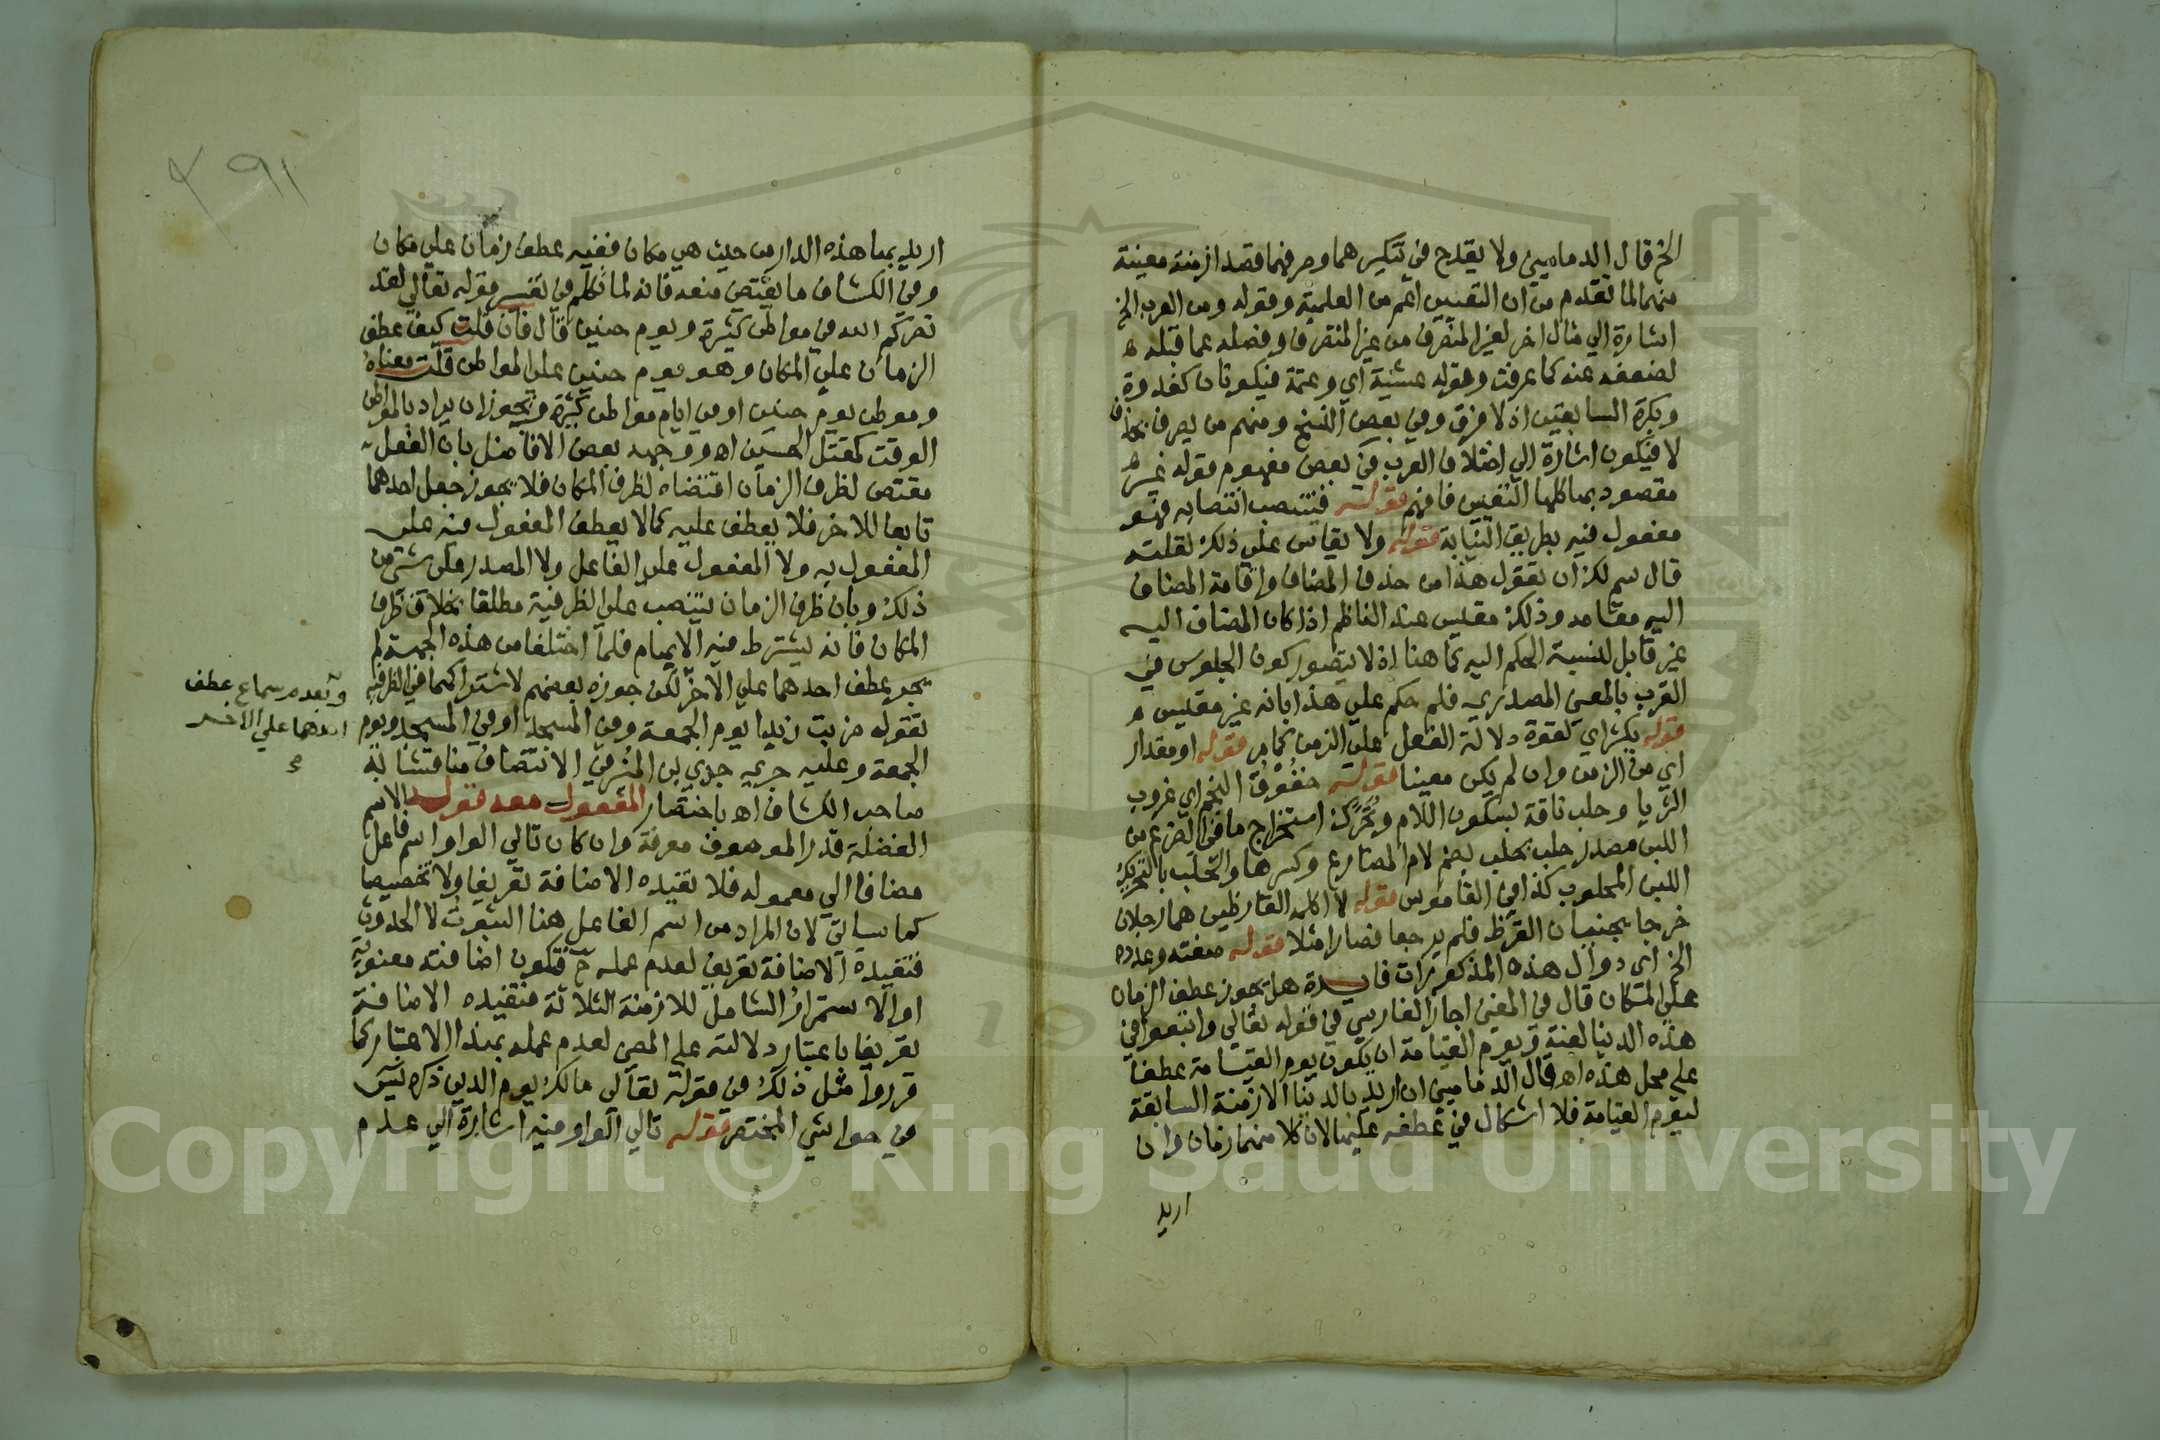 الخ قال الدماميني ولا يقدح في تنكيرهما وصرفهما قصد ازمنة معينة
منهما لما تقدم من ان التعيين اعم من العلمية وقوله ومن العرب الخ
اشارة الي مثال اخر لغير المتصرف من غير المنصرف وفصله عما قبله
لضعفه عنه كما عرفت وقوله عشية اي وعتمة فيكونان كغدوة
وبكرة السابقتين اذ لا فرق وفي بعض النسخ ومنهم من يصرف بحذف
لا فيكون اشارة الي اختلاف العرب في بعض مفهوم قوله غير
مقصود بها كلها التعيين فافهم قوله فينتصب انتصابه فهو
مفعول فيه بطريق النيابة قوله ولا يقاس علي ذلك لقلته
قال سم لك ان تقول هذا من حذف المضاف واقامة المضاف
اليه مقامه وذلك مقيس عند الناظم اذا كان المضاف اليه
غير قابل لنسبة الحكم اليه كما هنا اذ لا يتصور كون الجلوس في
القرب بالمعني المصدري فلم حكم علي هذا بانه غير مقيس
قوله يكثر اي لقوة دلالة الفعل علي الزمن كما مر قوله او مقدار
اي من الزمن وان لم يكن معينا قوله خفوق النجم اي غروب
الثريا وحلب ناقة بسكون اللام وتحرك استخراج ما في الضرع من
اللبن مصدر حلب يحلب بضم لام المضارع وكسرها والحلب بالتحريك
اللبن المحلوب كذا في القاموس قوله لا اكلمه القارظين هما رجلان
خرجا يجنيان القرظ فلم يرجعا فصارا مثلا قوله صفته وعدده
الخ اي دوال هذه المذكورات فايدة هل يجوز عطف الزمان
علي المكان قال في المغني اجاز الفارسي في قوله تعالي واتبعوا في
هذه الدنيا لعنة ويوم القيامة ان يكون يوم القيامة عطفا
علي محل هذه اه قال الدماميني ان اريد بالدنيا الازمنة السابقة
ليوم القيامة فلا اشكال في عطفه عليها لان كلا منهما زمان وان
اريد
٢٩١
اريد بها هذه الدار من حيث هي مكان ففيه عطف زمان علي مكان
وفي الكشاف ما يقتضي منعه فانه لما تكلم في تفسير قوله تعالي لقد
نصركم الله في مواطن كثيرة ويوم حنين قال فان قلت كيف عطف
الزمان علي المكان وهو يوم حنين علي المواطن قلت معناه
وموطن يوم حنين او في ايام مواطن كثيرة ويجوز ان يراد بالمواطن
الوقت كمقتل الحسين اه ووجهه بعض الافاضل بان الفعل
مقتض لظرف الزمان اقتضاه لظرف المكان فلا يجوز جعل احدهما
تابعا للاخر فلا يعطف عليه كما لا يعطف المفعول فيه علي
المفعول به ولا المفعول علي الفاعل ولا المصدر علي شي من
ذلك وبان ظرف الزمان ينتصب علي الظرفية مطلقا بخلاف ظرف
المكان فانه يشترط فيه الابهام فلما اختلفا من هذه الجهة لم
يجز عطف احدهما علي الاخر لكن جوزه بعضهم لاشتراكهما في الظرفية
تقول ضربت زيدا يوم الجمعة وفي المسجد او في المسجد ويوم
الجمعة وعليه جري جدي بن المنير في الانتصاف مناقشا به
صاحب الكشاف اه باختصار المفعول معه قوله الاسم
الفضلة قدر الموصوف معرفة وان كان تالي الواو اسم فاعل
مضافا الي معموله فلا تفيده الاضافة تعريفا ولا تخصيصا
كما سياتي لان المراد من اسم الفاعل هنا الثبوت لا الحدوث
فتفيده الاضافة تعريفا لعدم عمله ح فتكون اضافته معنوية
او الاستمرار الشامل للازمنة الثلاثة فتفيده الاضافة
تعريفا باعتبار دلالته علي المضي لعدم عمله بهذا الاعتبار كما
قرروا مثل ذلك في قوله تعالي مالك يوم الدين ذكره يس
في حواشي المختصر قوله تالي الواو فيه اشارة الي عدم
وبعدم سماع عطف
احدهما علي الاخر